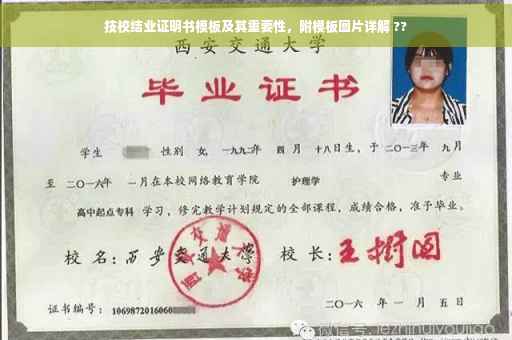 技校结业证明书模板及其重要性，附模板图片详解 ??
西安交通大学
毕业证书
学生 性别 女，一九九二年 四 月 十八日生，于 二〇一三年 九月
至 二〇一六年 一月在本校网络教育学院 护理学 专业
高中起点专科 学习，修完教学计划规定的全部课程，成绩合格，准予毕业。
校 名：西安交通大学 校 长：王树国
西安交通大学
证书编号：1069872016060
二〇一六 年 一 月 五 日
微信号: